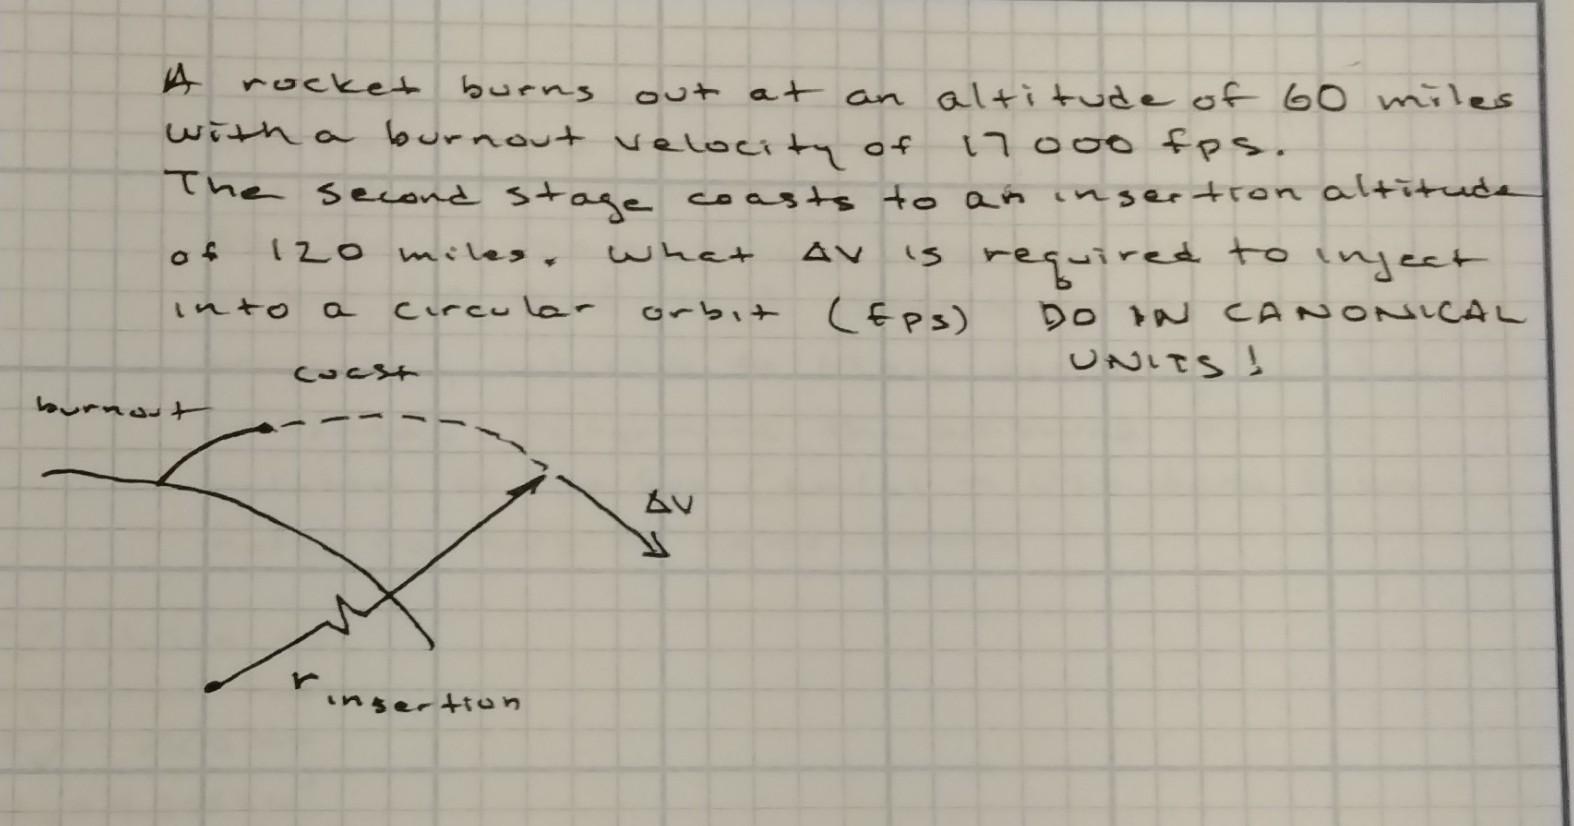 A rocket burns out at an altitude of 60 miles
with a burnout velocity of 17000 fps.
The second stage coasts to an insertion altitude
of 120 miles. What ΔV is required to inject
into a circular orbit (fps) DO IN CANONICAL
UNITS!
coast
burnout
ΔV
r insertion